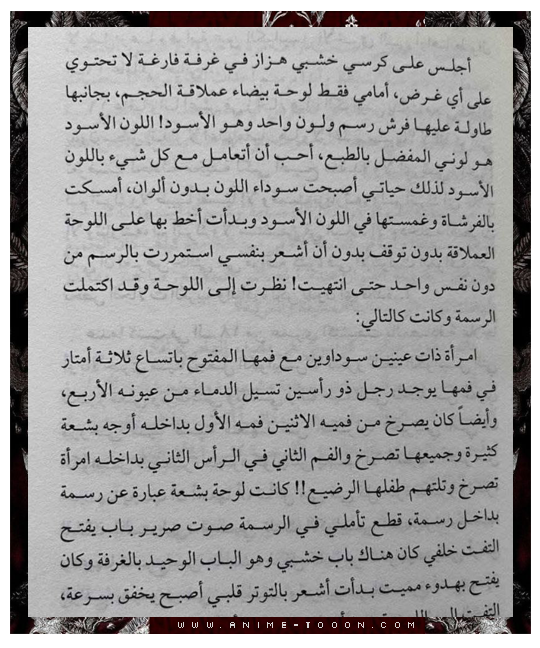 أجلس على كرسي خشبي هزاز في غرفة فارغة لا تحتوي
على أي غرض، أمامي فقط لوحة بيضاء عملاقة الحجم، بجانبها
طاولة عليها فرش رسم ولون واحد وهو الأسود! اللون الأسود
هو لوني المفضل بالطبع، أحب أن أتعامل مع كل شيء باللون
الأسود لذلك حياتي أصبحت سوداء اللون بدون ألوان، أمسكت
بالفرشاة وغمستها في اللون الأسود وبدأت أخط بها على اللوحة
العملاقة بدون توقف بدون أن أشعر بنفسي استمررت بالرسم من
دون نفس واحد حتى انتهيت! نظرت إلى اللوحة وقد اكتملت
الرسمة وكانت كالتالي:
امرأة ذات عينين سوداوين مع فمها المفتوح باتساع ثلاثة أمتار
في فمها يوجد رجل ذو رأسين تسيل الدماء من عيونه الأربع،
وأيضاً كان يصرخ من فميه الاثنين فمه الأول بداخله أوجه بشعة
كثيرة وجميعها تصرخ والفم الثاني في الرأس الثاني بداخله امرأة
تصرخ وتلتهم طفلها الرضيع!! كانت لوحة بشعة عبارة عن رسمة
بداخل رسمة، قطع تأملي في الرسمة صوت صرير باب يفتح
التفت خلفي كان هناك باب خشبي وهو الباب الوحيد بالغرفة وكان
يفتح بهدوء مميت بدأت أشعر بالتوتر قلبي أصبح يخفق بسرعة،
WWW.ANIME-TOOON.COM